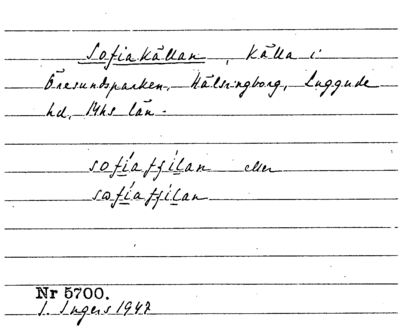 Sofiakällan, källa i
Öresundsparken, Hälsingborg, Luggude
hd, Mhs län.
sofíaꞩílan eller
sωfíaꞩílan
Nr 5700.
I. Ingers 1947